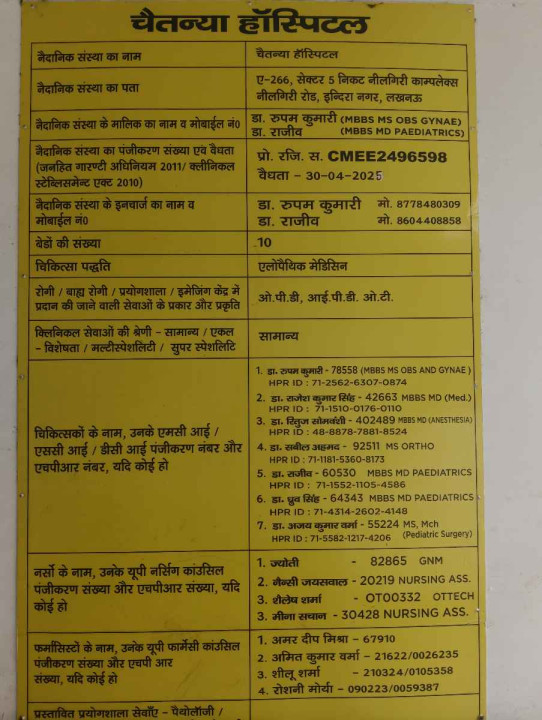 चैतन्या हॉस्पिटल
नैदानिक संस्था का नाम
चैतन्या हॉस्पिटल
नैदानिक संस्था का पता
ए-266, सेक्टर 5 निकट नीलगिरी काम्पलेक्स
नीलगिरी रोड, इन्दिरा नगर, लखनऊ
नैदानिक संस्था के मालिक का नाम व मोबाईल नं0
डा. रुपम कुमारी (MBBS MS OBS GYNAE)
डा. राजीव (MBBS MD PAEDIATRICS)
नैदानिक संस्था का पंजीकरण संख्या एवं वैधता
(जनहित गारण्टी अधिनियम 2011/ क्लीनिकल
स्टेब्लिसमेन्ट एक्ट 2010)
प्रो. रजि. स. CMEE2496598
वैधता - 30-04-2025
नैदानिक संस्था के इनचार्ज का नाम व
मोबाईल नं0
डा. रुपम कुमारी मो. 8778480309
डा. राजीव मो. 8604408858
बेडों की संख्या
10
चिकित्सा पद्धति
एलोपैथिक मेडिसिन
रोगी / बाह्य रोगी / प्रयोगशाला / इमेजिंग केंद्र में
प्रदान की जाने वाली सेवाओं के प्रकार और प्रकृति
ओ.पी.डी, आई.पी.डी. ओ.टी.
क्लिनिकल सेवाओं की श्रेणी - सामान्य / एकल
- विशेषता / मल्टीस्पेशलिटी / सुपर स्पेशलिटि
सामान्य
चिकित्सकों के नाम, उनके एमसी आई /
एससी आई / डीसी आई पंजीकरण नंबर और
एचपीआर नंबर, यदि कोई हो
1. डा. रुपम कुमारी - 78558 (MBBS MS OBS AND GYNAE )
HPR ID : 71-2562-6307-0874
2. डा. राजेश कुमार सिंह - 42663 MBBS MD (Med.)
HPR ID : 71-1510-0176-0110
3. डा. रितुज सोमवंशी - 402489 MBBS MD (ANESTHESIA)
HPR ID : 48-8878-7881-8524
4. डा. सबील अहमद - 92511 MS ORTHO
HPR ID : 71-1181-5360-8173
5. डा. राजीव - 60530 MBBS MD PAEDIATRICS
HPR ID : 71-1552-1105-4586
6. डा. ध्रुव सिंह - 64343 MBBS MD PAEDIATRICS
HPR ID : 71-4314-2602-4148
7. डा. अजय कुमार वर्मा - 55224 MS, Mch
HPR ID : 71-5582-1217-4206 (Pediatric Surgery)
नर्सो के नाम, उनके यूपी नर्सिंग कांउसिल
पंजीकरण संख्या और एचपीआर संख्या, यदि
कोई हो
1. ज्योती - 82865 GNM
2. नैन्सी जयसवाल - 20219 NURSING ASS.
3. शैलेष शर्मा - OT00332 OTTECH
3. मीना सचान - 30428 NURSING ASS.
फर्मासिस्टों के नाम, उनके यूपी फार्मेसी कांउसिल
पंजीकरण संख्या और एचपी आर
संख्या, यदि कोई हो
1. अमर दीप मिश्रा - 67910
2. अमित कुमार वर्मा - 21622/0026235
3. शीलू शर्मा - 210324/0105358
4. रोशनी मोर्या - 090223/0059387
प्रस्तावित प्रयोगशाला सेवाएँ - पैथोलॉजी /